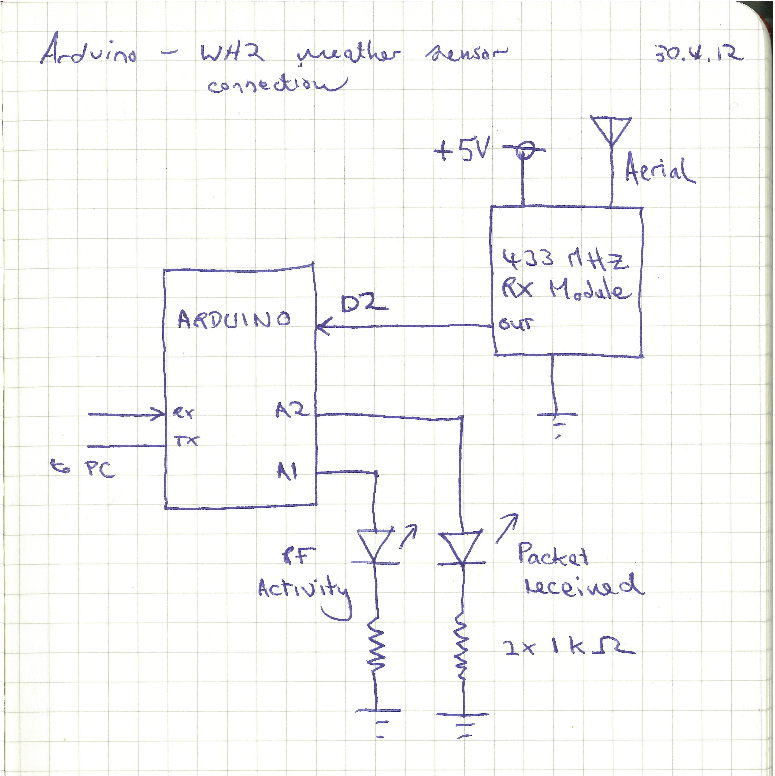 Arduino - WH2 weather sensor 30.4.12
connection
+5V
Aerial
433 MHz
RX Module
OUT
D2
ARDUINO
RX
TX
to PC
A2
A1
RF
Activity
Packet
received
2x 1kΩ